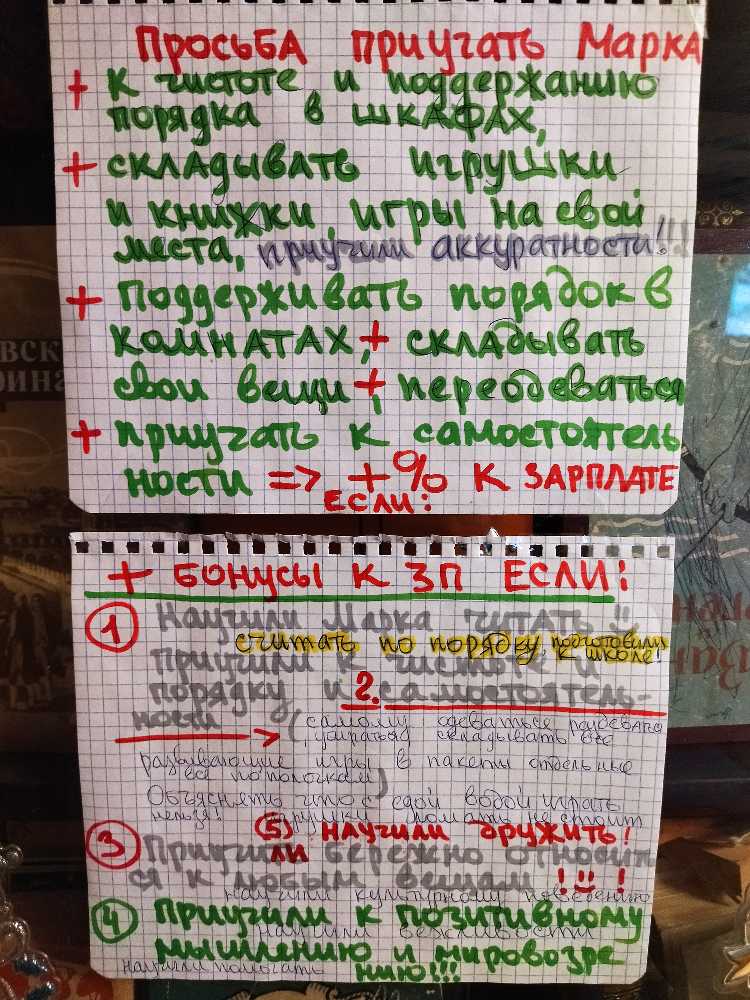 Просьба приучать Марка
+ к чистоте и поддержанию
порядка в шкафах,
+ складывать игрушки
и книжки, игры на свои
места, приучили аккуратности!!!
+ поддерживать порядок в
комнатах, + складывать
свои вещи, + переодеваться
+ приучать к самостоятель
ности => + % к зарплате
если:
+ бонусы к ЗП если:
① Научили Марка читать!!,
считать по порядку, подготовили к школе!
приучили к чистоте и
порядку и 2. самостоятель-
ности
→ (самому одеваться раздеваться
, убираться складывать все
развивающие игры в пакеты отдельные
все по полочкам)
Объяснять что с едой водой играть
нельзя! игрушки ломать не стоит
⑤ научили дружить!
③ Приучили бережно относить
ся к любым вещам!!! !
научили культурному поведению
④ Приучили к позитивному
научили вежливости
мышлению и мировоззре
нию!!!
научили помогать